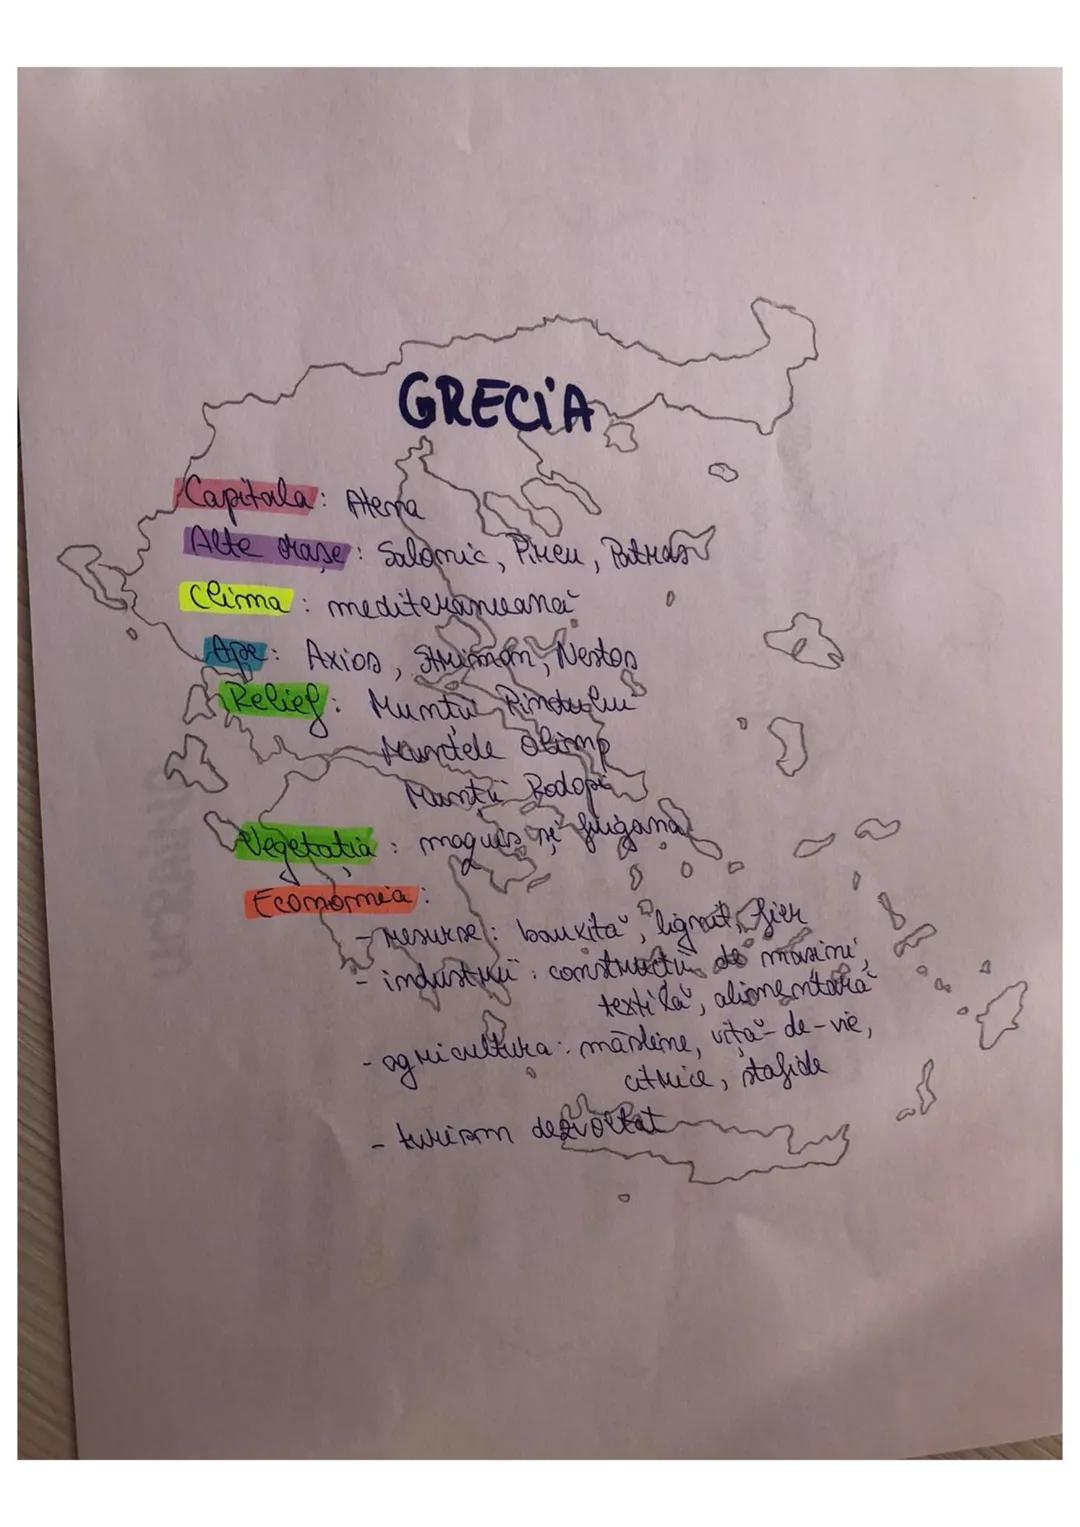 GRECIA
Capitala: Atena
Alte orașe: Salonic, Pireu, Patras
Clima: mediteraneană
Ape: Axios, Strimon, Nestos
Relief: Munții Pindului
Muntele Olimp
Munții Rodopi
Vegetația: maquis și frigana
Economia:
- resurse: bauxită, lignit, fier
- industrii: construcții de mașini,
textilă, alimentară
- agricultura: măsline, viță-de-vie,
citrice, stafide
- turism dezvoltat